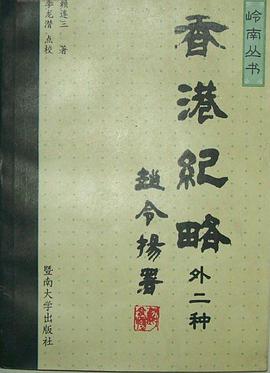 岭南丛书
香港紀略
外二种
趙令揚署
赖连三 著
李龙潜 点校
暨南大学出版社